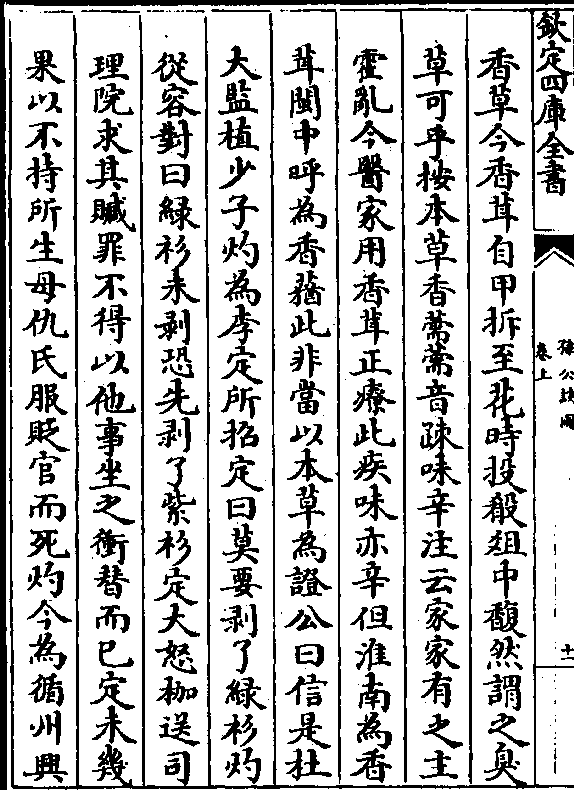 欽定四庫全書
孫公談圃
卷上
十一
香草今香茸自甲拆至花時投殽俎中馥然謂之臭
草可乎按本草香薷薷音疎味辛注云家家有之主
霍亂今醫家用香茸正療此疾味亦辛但淮南為香
茸閩中呼為香䕲此非當以本草為證公曰信是杜
大監植少子灼為李定所招定曰莫要剥了緑衫灼
從容對曰緑衫未剥恐先剥了紫衫定大怒枷送司
理院求其贓罪不得以他事坐之衝替而已定未幾
果以不持所生母仇氏服貶官而死灼今為循州興